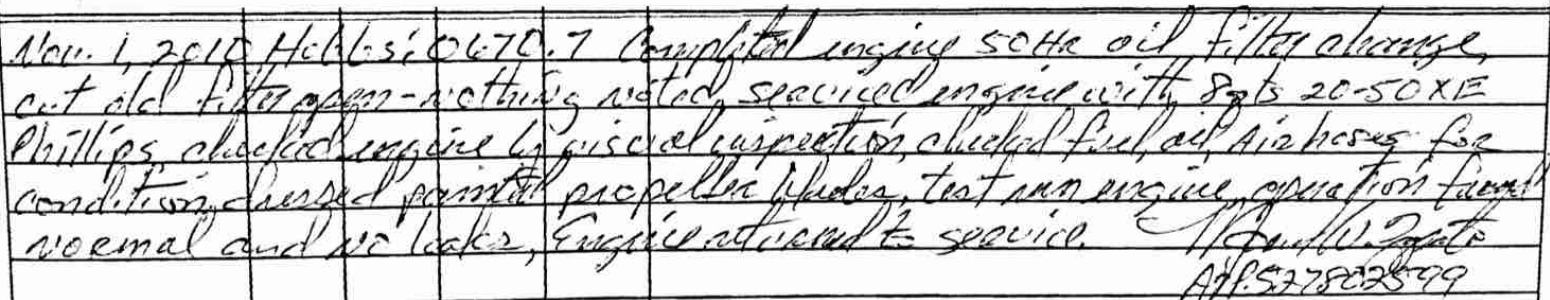 Nov. 1, 2010 Hobbs: 0670.7 Completed engine 50HR oil filter change,
cut old filter open-nothing noted, serviced engine with 8qts 20-50XE
Phillips, checked engine by visual inspection, checked fuel, oil, Air hoses for
condition, dressed painted propeller blades, test run engine, operation found
normal and no leaks, Engine returned to service.
A&P.527802599